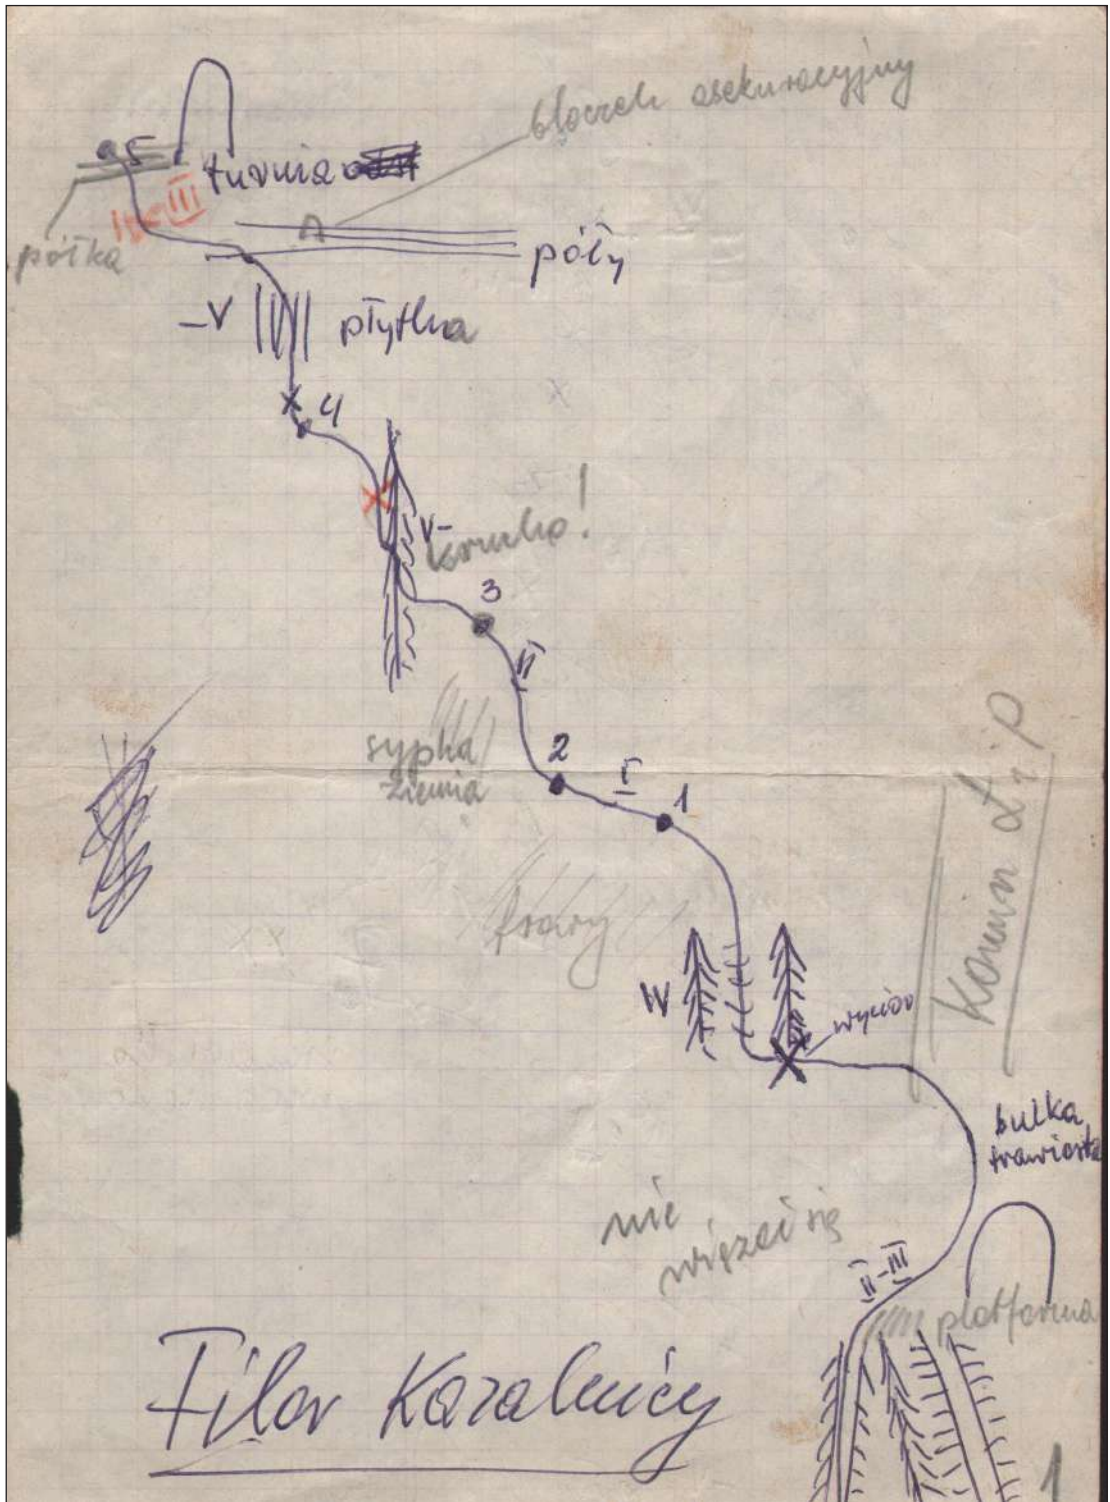 bloczek asekuracyjny
95
turnia
III
półka
póły
-V
płytka
4
V-
krucho!
3
II
sypka
ziemia
2
I
1
trawy
Komin Ł i P
IV
wycior
bulka
trawiasta
nie
wiązać się
II-III
platforma
Filar Kazalnicy
1